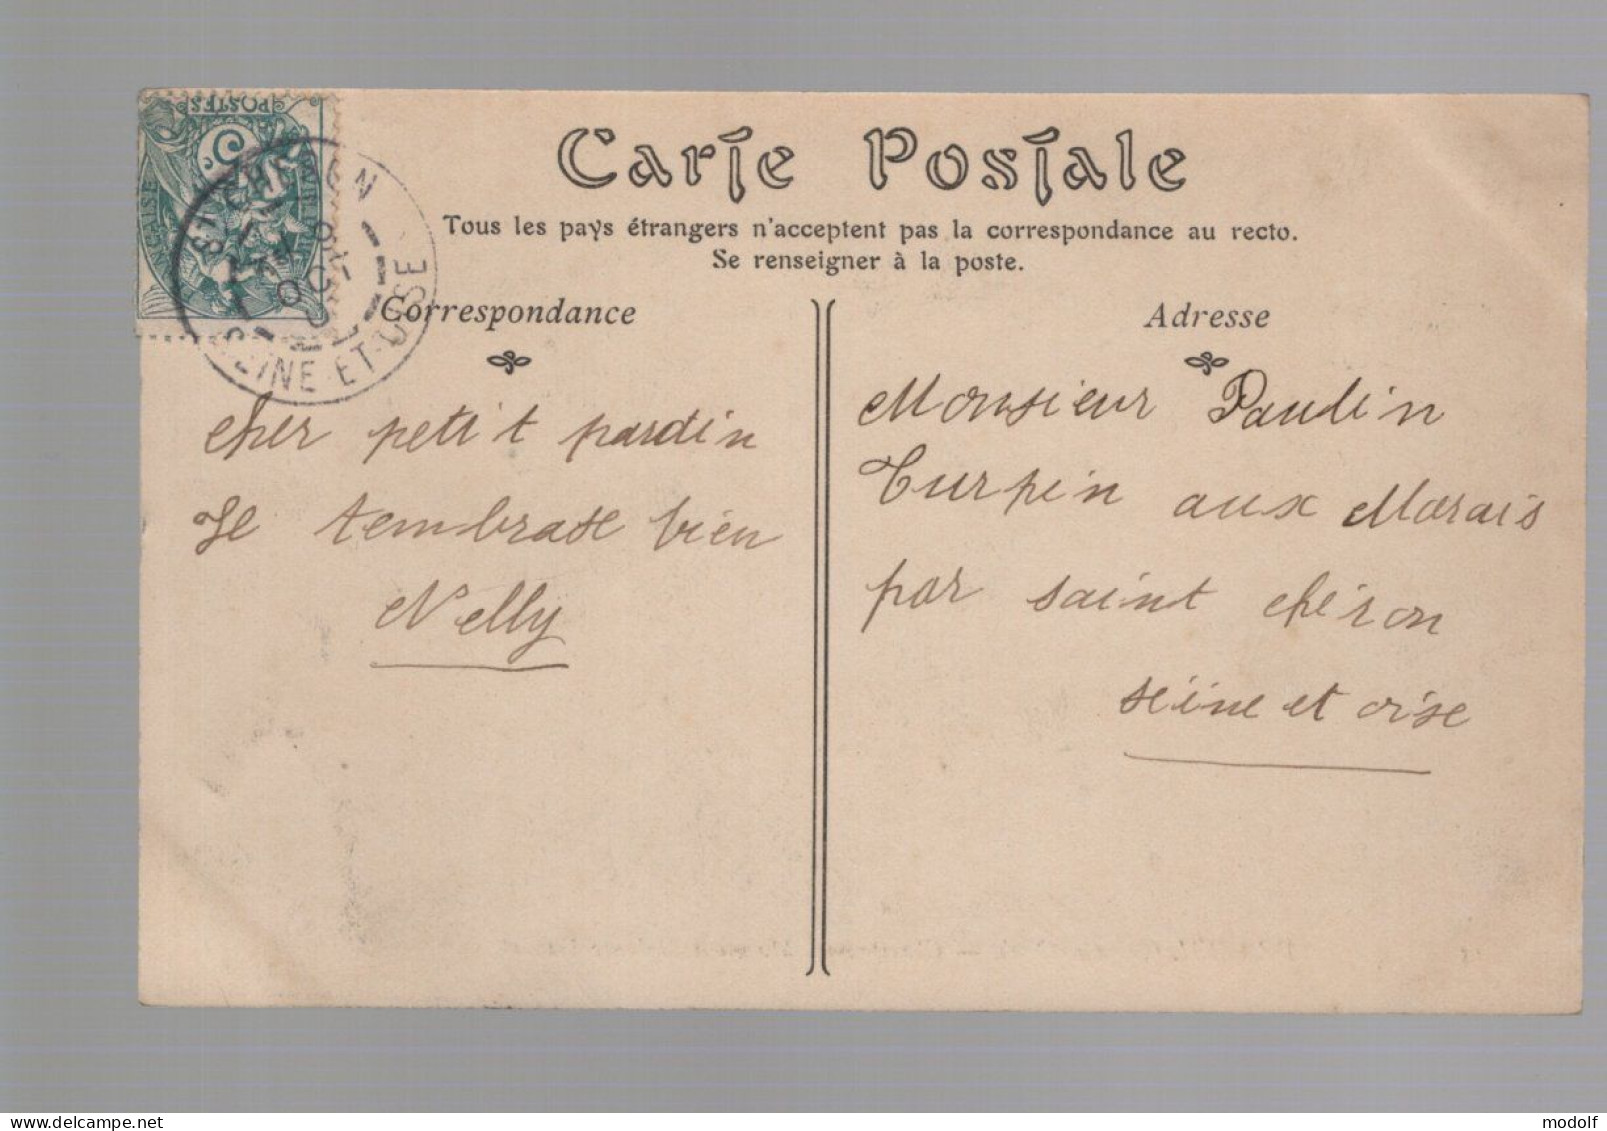 POSTES
5
ST CHERON
SEINE-ET-OISE
Carte Postale
Tous les pays étrangers n'acceptent pas la correspondance au recto.
Se renseigner à la poste.
Correspondance
Adresse
cher petit pardin
Je tembrase bien
Nelly
Monsieur Paulin
Turpin aux Marais
par saint chéron
seine et oise
modolf